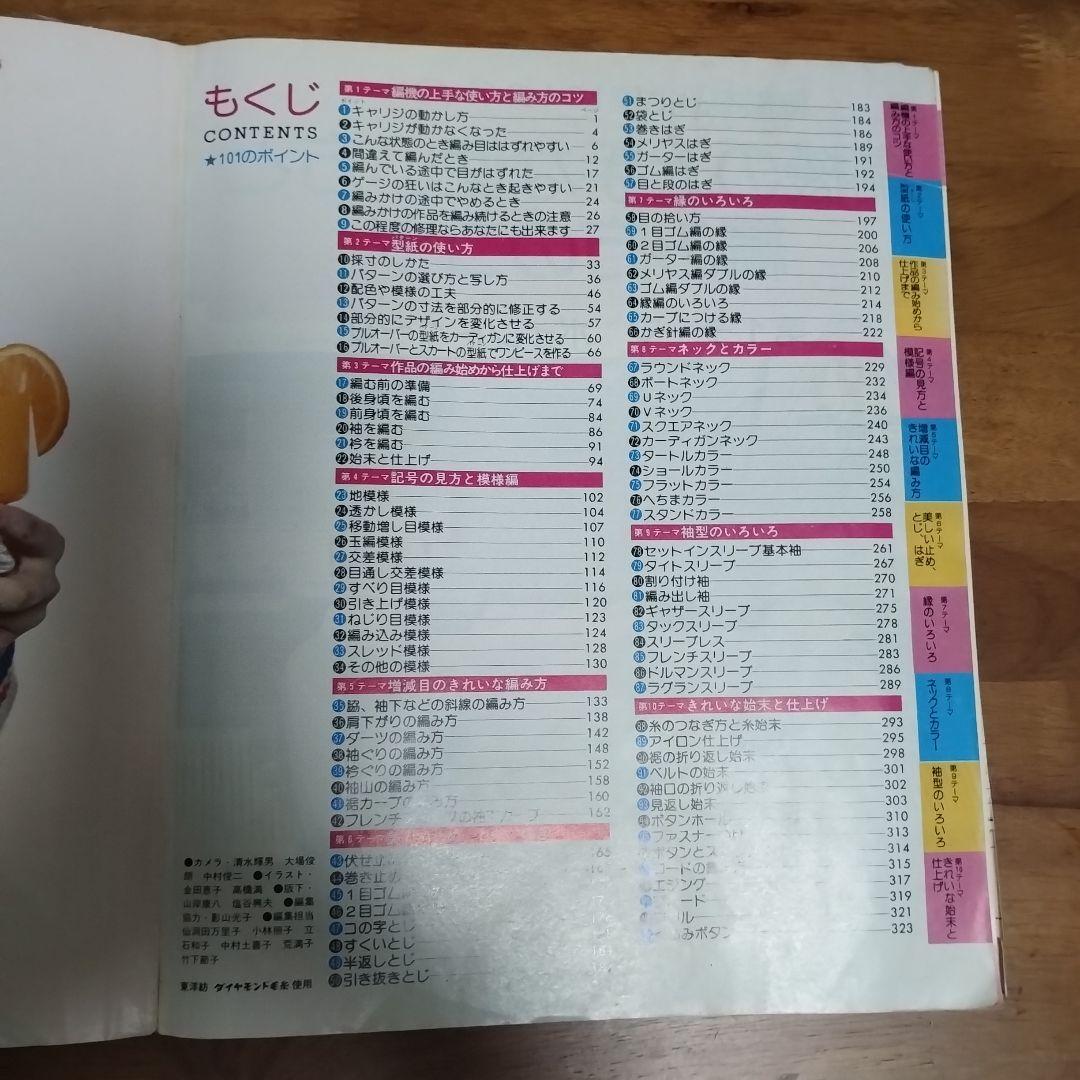 もくじ
CONTENTS
★101のポイント
第1テーマ 編機の上手な使い方と編み方のコツ
ポイント
ページ
1 キャリジの動かし方 1
2 キャリジが動かなくなった 4
3 こんな状態のとき編み目ははずれやすい 6
4 間違えて編んだとき 12
5 編んでいる途中で目がはずれた 17
6 ゲージの狂いはこんなとき起きやすい 21
7 編みかけの途中でやめるとき 24
8 編みかけの作品を編み続けるときの注意 26
9 この程度の修理ならあなたにも出来ます 27
第2テーマ 型紙の使い方
パターン
10 採寸のしかた 33
11 パターンの選び方と写し方 36
12 配色や模様の工夫 46
13 パターンの寸法を部分的に修正する 54
14 部分的にデザインを変化させる 57
15 プルオーバーの型紙をカーディガンに変化させる 60
16 プルオーバーとスカートの型紙でワンピースを作る 66
第3テーマ 作品の編み始めから仕上げまで
17 編む前の準備 69
18 後身頃を編む 74
19 前身頃を編む 84
20 袖を編む 86
21 衿を編む 91
22 始末と仕上げ 94
第4テーマ 記号の見方と模様編
23 地模様 102
24 透かし模様 104
25 移動増し目模様 107
26 玉編模様 110
27 交差模様 112
28 目通し交差模様 114
29 すべり目模様 116
30 引き上げ模様 120
31 ねじり目模様 123
32 編み込み模様 124
33 スレッド模様 128
34 その他の模様 130
第5テーマ 増減目のきれいな編み方
35 脇、袖下などの斜線の編み方 133
36 肩下がりの編み方 138
37 ダーツの編み方 142
38 袖ぐりの編み方 148
39 衿ぐりの編み方 152
40 袖山の編み方 158
41 裾カーブの編み方 160
42 フレンチ の袖 カーブ 162
第6テーマ
43 伏せ止 165
44 巻き止め
45 1目ゴム編
46 2目ゴム編
47 コの字とじ
48 すくいとじ
49 半返しとじ
50 引き抜きとじ
51 まつりとじ 183
52 袋とじ 184
53 巻きはぎ 186
54 メリヤスはぎ 189
55 ガーターはぎ 191
56 ゴム編はぎ 192
57 目と段のはぎ 194
第7テーマ 縁のいろいろ
58 目の拾い方 197
59 1目ゴム編の縁 200
60 2目ゴム編の縁 206
61 ガーター編の縁 208
62 メリヤス編ダブルの縁 210
63 ゴム編ダブルの縁 212
64 縁編のいろいろ 214
65 カーブにつける縁 218
66 かぎ針編の縁 222
第8テーマ ネックとカラー
67 ラウンドネック 229
68 ボートネック 232
69 Uネック 234
70 Vネック 236
71 スクエアネック 240
72 カーディガンネック 243
73 タートルカラー 248
74 ショールカラー 250
75 フラットカラー 254
76 へちまカラー 256
77 スタンドカラー 258
第9テーマ 袖型のいろいろ
78 セットインスリーブ基本袖 261
79 タイトスリーブ 267
80 割り付け袖 270
81 編み出し袖 271
82 ギャザースリーブ 275
83 タックスリーブ 278
84 スリーブレス 281
85 フレンチスリーブ 283
86 ドルマンスリーブ 286
87 ラグランスリーブ 289
第10テーマ きれいな始末と仕上げ
88 糸のつなぎ方と糸始末 293
89 アイロン仕上げ 295
90 裾の折り返し始末 298
91 ベルトの始末 301
92 袖口の折り返し始末 302
93 見返し始末 303
94 ボタンホール 310
95 ファスナー 313
ボタンとス 314
コードの 315
エジング 317
ード 319
ール 321
みボタン 323
●カメラ・清水輝男 大場俊
顕 中村俊二 ●イラスト・
金田恵子 高橋満 ●版下・
山岸康八 塩谷興夫 ●編集
協力・影山光子 ●編集担当
仙洞田万里子 小林册子 立
石和子 中村土喜子 荒満子
竹下節子
東洋紡 ダイヤモンド毛糸 使用
第1テーマ 編機の上手な使い方と編み方のコツ
第2テーマ 型紙の使い方
第3テーマ 作品の編み始めから仕上げまで
第4テーマ 記号の見方と模様編
第5テーマ 増減目のきれいな編み方
第6テーマ 美しい止め、とじ、はぎ
第7テーマ 縁のいろいろ
第8テーマ ネックとカラー
第9テーマ 袖型のいろいろ
第10テーマ きれいな始末と仕上げ